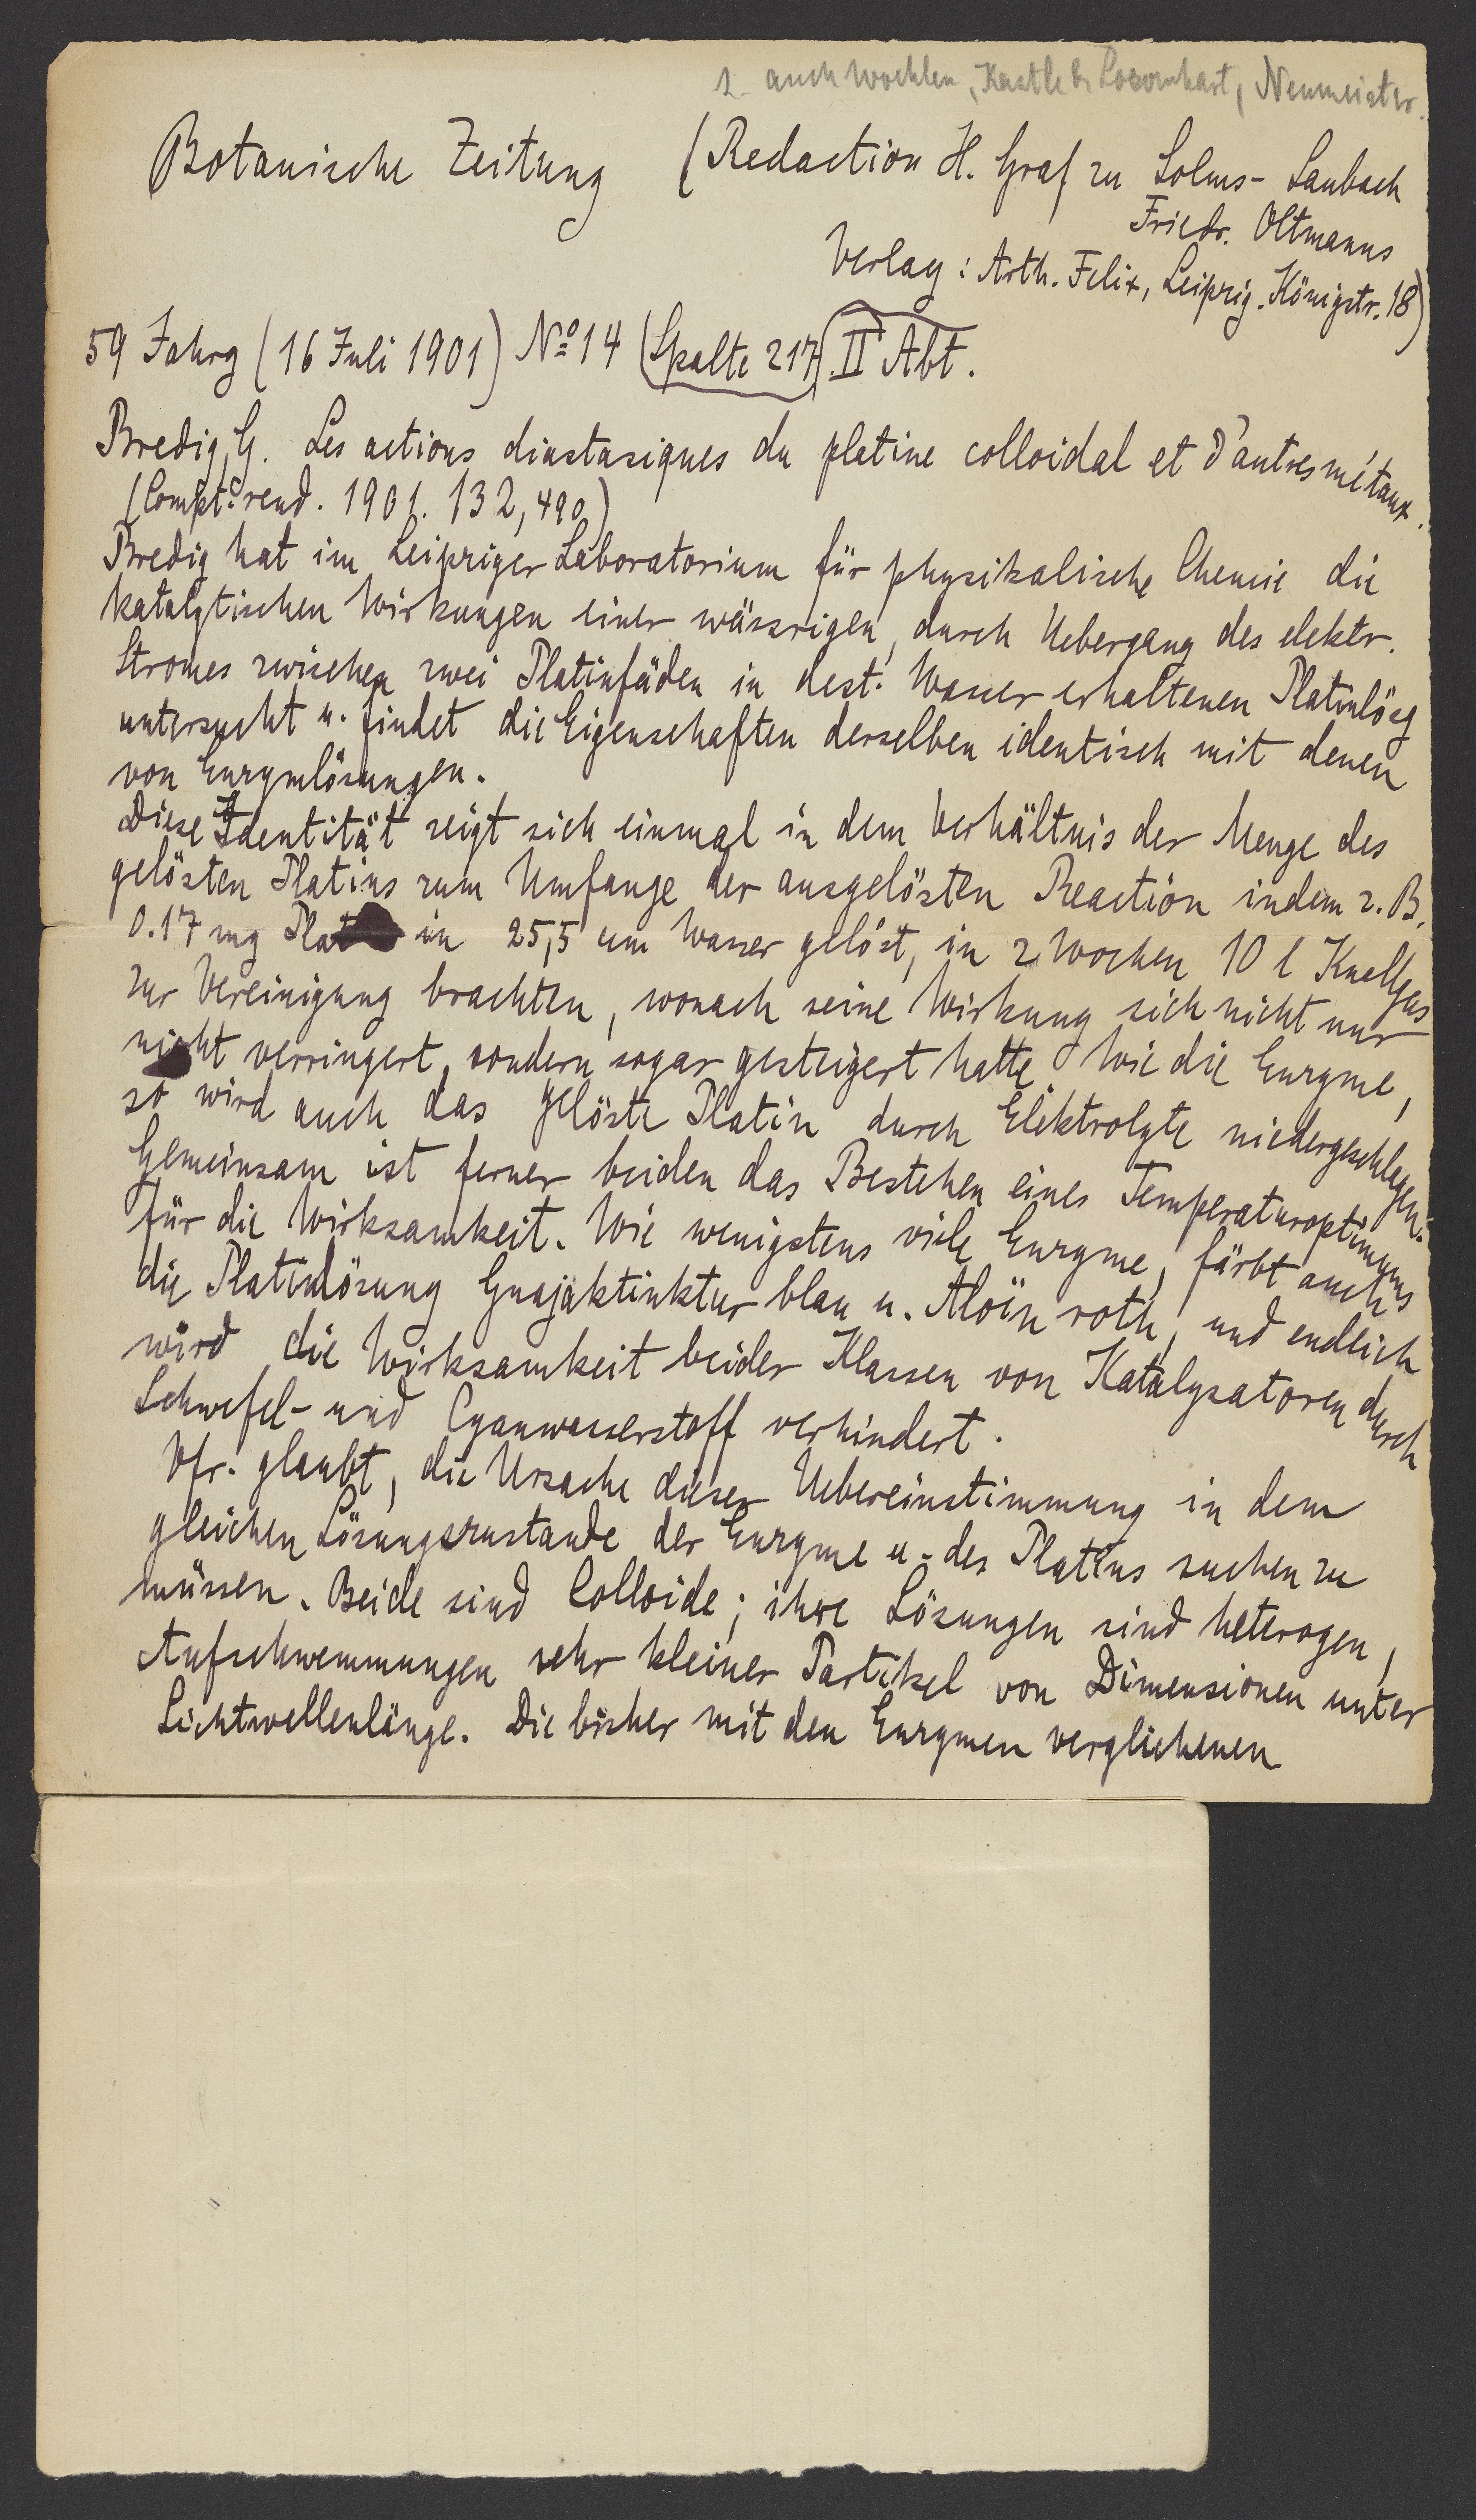 s. auch Woehler, Kastle & Loevenhart, Neumeister.
Botanische Zeitung (Redaction H. Graf zu Solms-Laubach
Friedr. Oltmanns
Verlag: Arth. Felix, Leipzig. Königstr. 18)
59 Jahrg (16 Juli 1901) No 14 (Spalte 217) II Abt.
Bredig, G. Les actions diastasiques du platine colloidal et d'autres métaux.
(Compt. rend. 1901. 132, 490)
Bredig hat im Leipziger Laboratorium für physikalische Chemie die
katalytischen Wirkungen einer wässrigen, durch Uebergang des elektr.
Stromes zwischen zwei Platinfäden in dest. Wasser erhaltenen Platinlösg
untersucht u. findet die Eigenschaften derselben identisch mit denen
von Enzymlösungen.
Diese Identität zeigt sich einmal in dem Verhältnis der Menge des
gelösten Platins zum Umfange der ausgelösten Reaction indem z. B.
0.17 mg Plat in 25,5 ccm Wasser gelöst, in 2 Wochen 10 l Knallgas
zur Vereinigung brachten, wonach seine Wirkung sich nicht nur
nicht verringert, sondern sogar gesteigert hatte. Wie die Enzyme,
so wird auch das gelöste Platin durch Elektrolyte niedergeschlagen.
Gemeinsam ist ferner beiden das Bestehen eines Temperaturoptimums
für die Wirksamkeit. Wie wenigstens viele Enzyme, färbt auch
die Platinlösung Guajaktinktur blau u. Aloïn roth, und endlich
wird die Wirksamkeit beider Klassen von Katalysatoren durch
Schwefel- und Cyanwasserstoff verhindert.
Vfr. glaubt, die Ursache dieser Uebereinstimmung in dem
gleichen Lösungszustande der Enzyme u. des Platins suchen zu
müssen. Beide sind Colloide; ihre Lösungen sind heterogen,
Aufschwemmungen sehr kleiner Partikel von Dimensionen unter
Lichtwellenlänge. Die bisher mit den Enzymen verglichenen